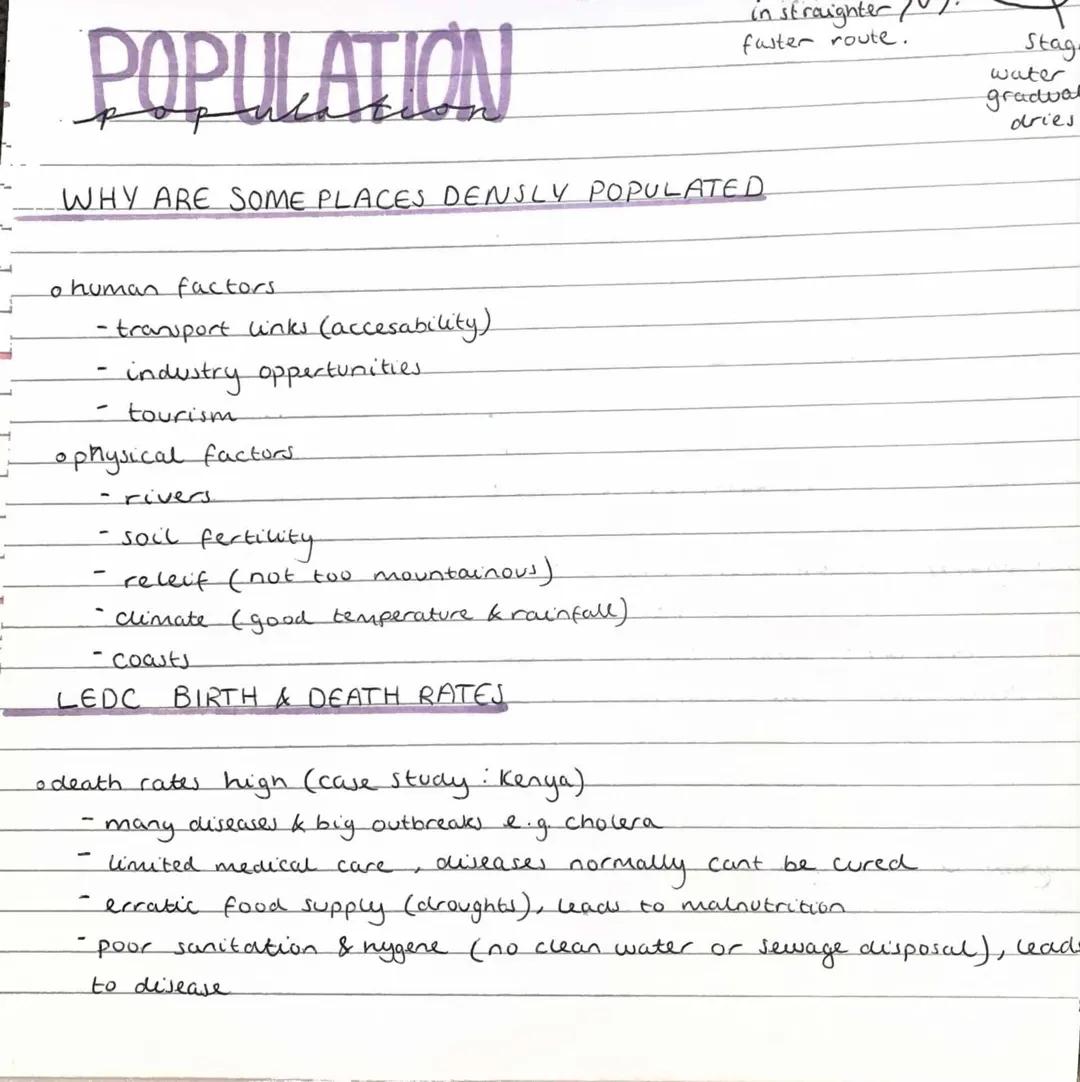 in straighter
faster route.
Stag
water
gradual
dries
POPULATION
population
WHY ARE SOME PLACES DENSLY POPULATED
o human factors
- transport links (accesability)
- industry oppertunities
- tourism
o physical factors
- rivers
- soil fertility
- releif (not too mountainous)
- climate (good temperature & rainfall)
- coasts
LEDC BIRTH & DEATH RATES
o death rates high (case study : Kenya)
- many diseases & big outbreaks e.g. cholera
- limited medical care, diseases normally cant be cured
- erratic food supply (droughts), leads to malnutrition
- poor sanitation & hygene (no clean water or sewage disposal), leads
to disease